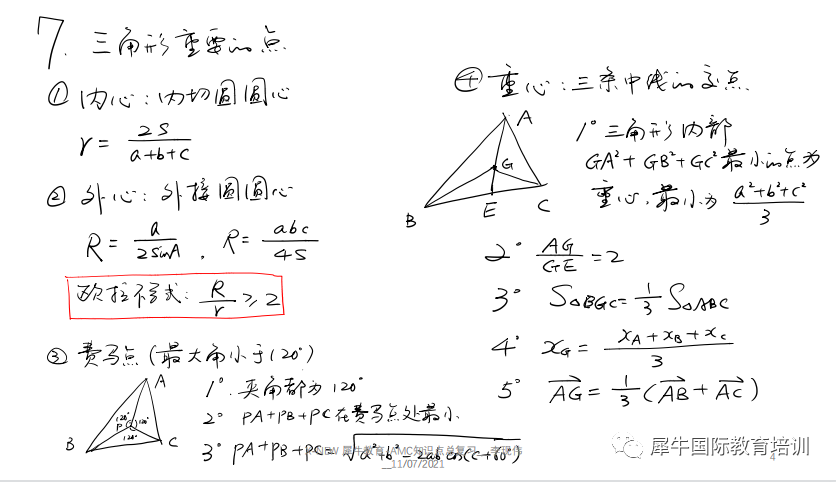 7. 三角形重要的点
① 内心: 内切圆圆心
r = 2S / a+b+c
② 外心: 外接圆圆心
R = a / 2sinA , R = abc / 4S
欧拉不等式: R / r ≥ 2
③ 费马点 (最大角小于120°)
A
B
C
P
120°
120°
120°
1° 夹角都为120°
2° PA+PB+PC在费马点处最小
3° PA+PB+PC=√a²+b²-2ab cos(C+60°)
④ 重心: 三条中线的交点
A
G
B
E
C
1° 三角形内部
GA²+GB²+GC²最小的点为
重心, 最小为 a²+b²+c² / 3
2° AG / GE = 2
3° S△BGC = 1/3 S△ABC
4° xG = xA+xB+xC / 3
5° AG = 1/3 (AB+AC)
NEW 犀牛教育 AMC知识点总复习
11/07/2021
4
犀牛国际教育培训